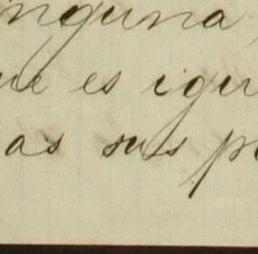 inguna,
ue es igu
as sus p